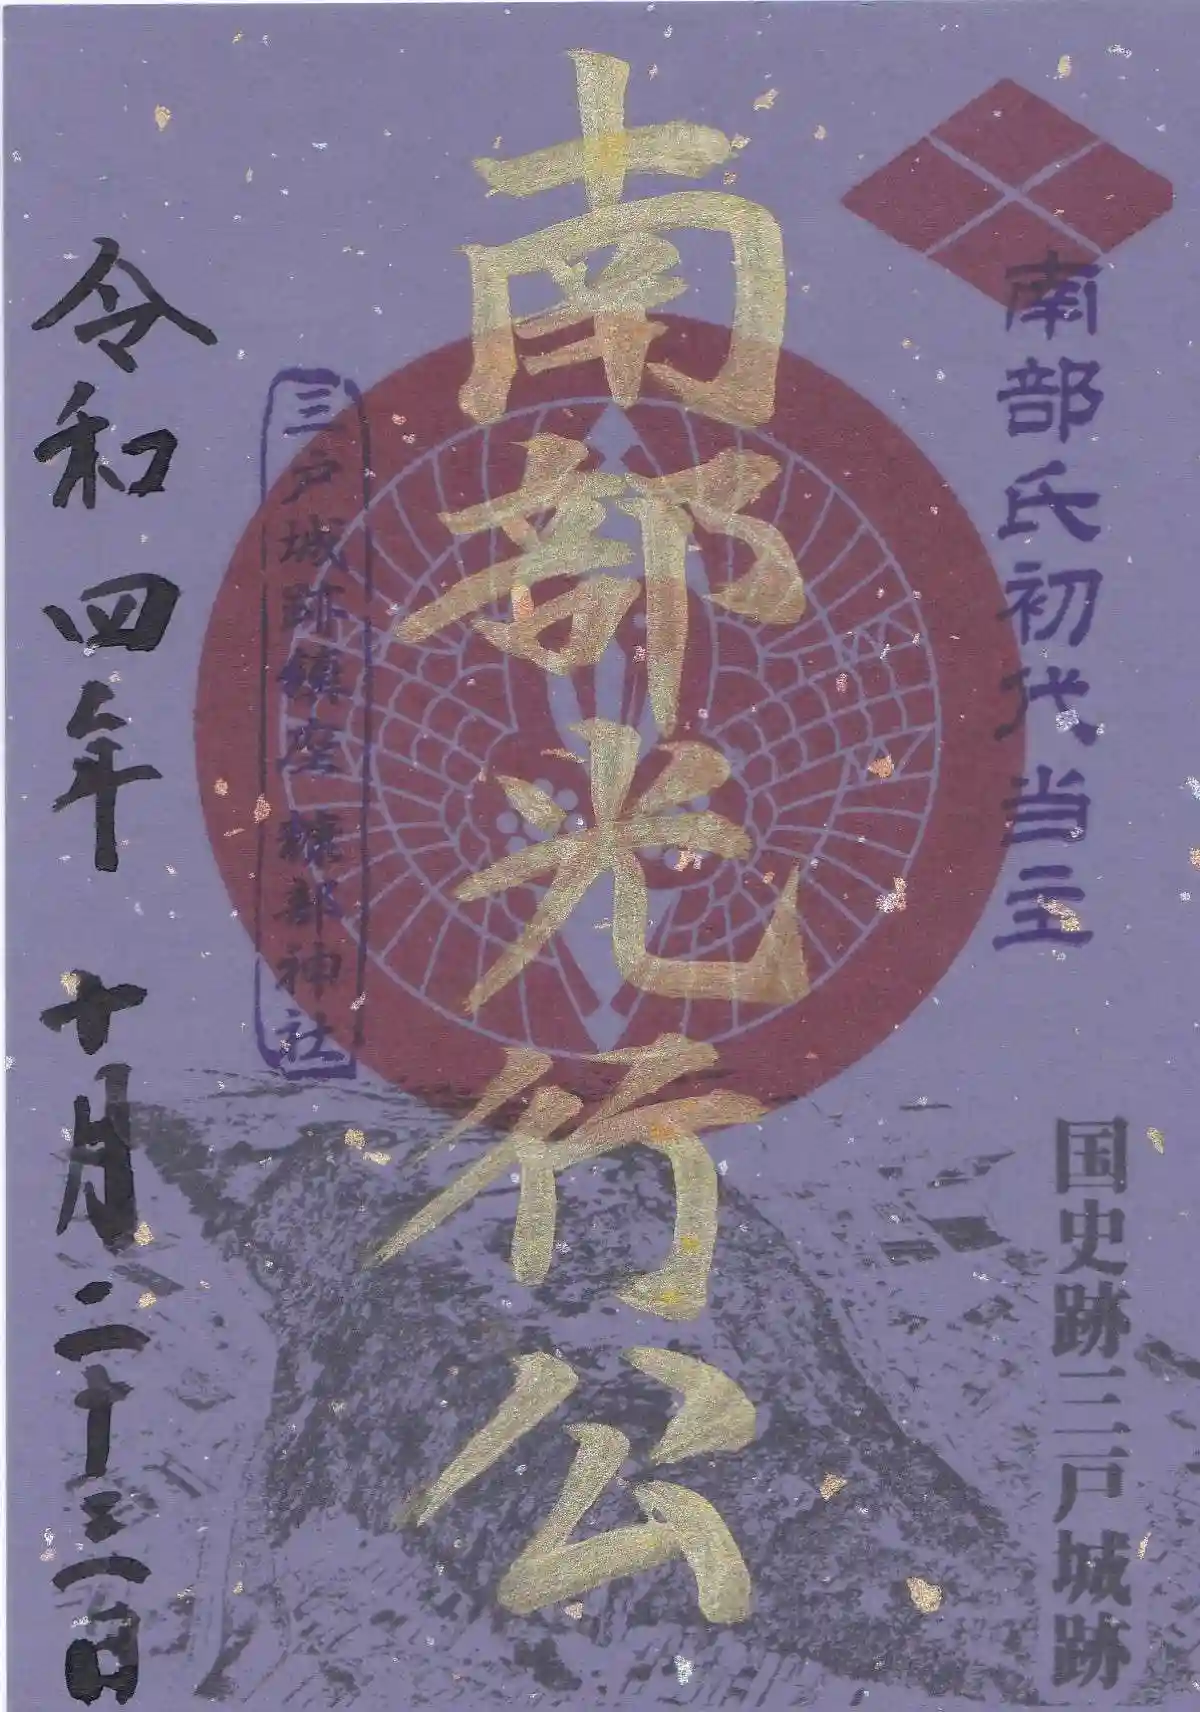 南部氏初代当主
国史跡三戸城跡
南部光行公
三戸城跡鎮座糠部神社
令和四年十月二十三日